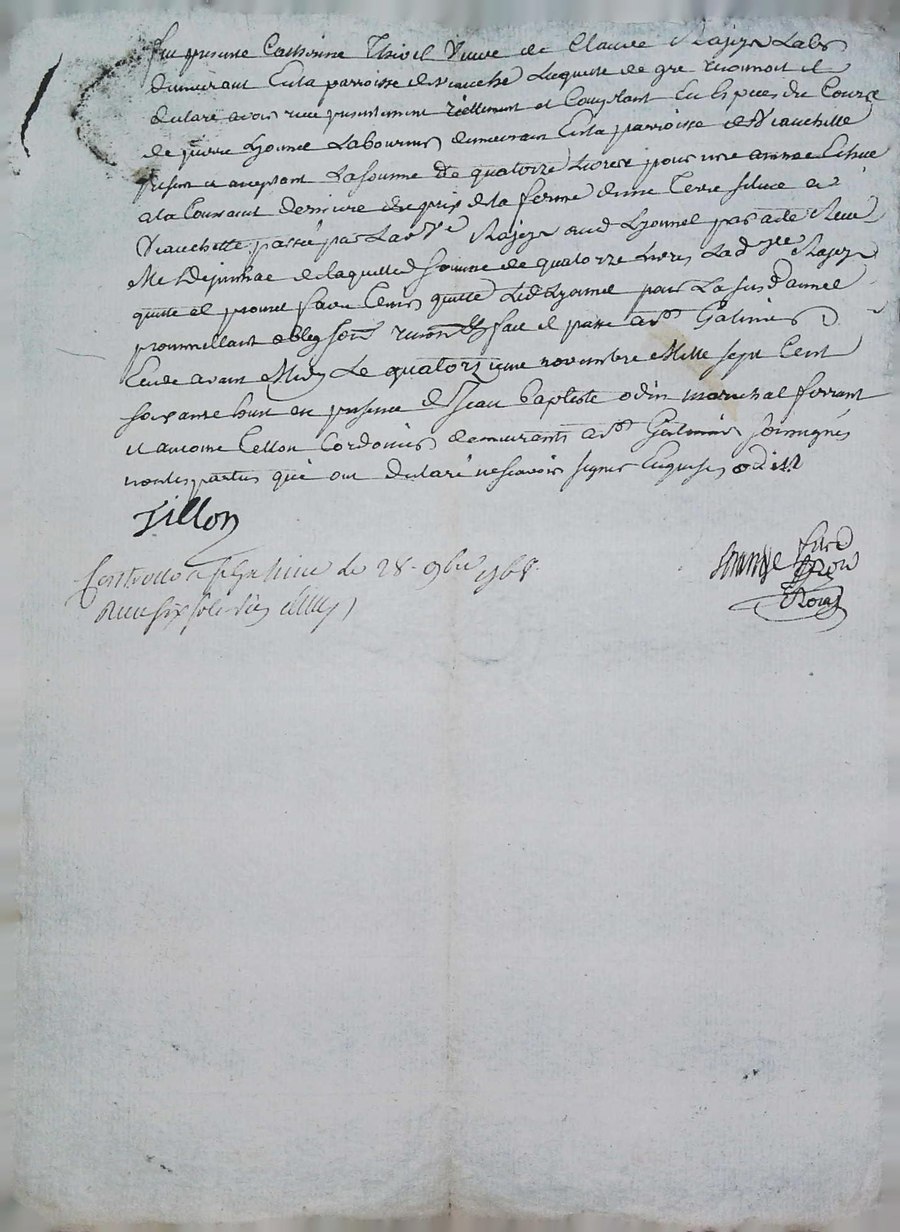 fut presente Catherine Thioil veuve de Claude Rajeza Labr
demeurant En la parroisse de veauche Laquelle de gré reconnoit et
declare avoir reçu presentement réellement et Comptant En Espèces du Cours
de pierre Lyonnel Laboureur demeurant En la parroisse de Veauchette
présent et acceptant La somme de quatorze Livres pour une année Echue
a la Toussaint derniere du prix de la ferme d'une Terre située a
Veauchette passée par Lad ve Rajeza aud Lyonnel par acte Reçu
Me de laquelle somme de quatorze Livres Lad ve Rajeza
quitte et promet faire Tenir quitte Led Lyonnel pour La susd année
promettant oblig soum renon fait et passé a st Galmier
Etude avant Midy Le quatorzieme novembre Mille sept Cent
soixante huit en presence de Jean Baptiste odin marechal ferrant
et antoine Tellon Cordonier demeurants a st Galmier soussignés
non les parties qui ont declaré ne scavoir signer Enquises odin
Tillon
Controllé a st Galmier le 28 9bre 1768
Reçu six sols six